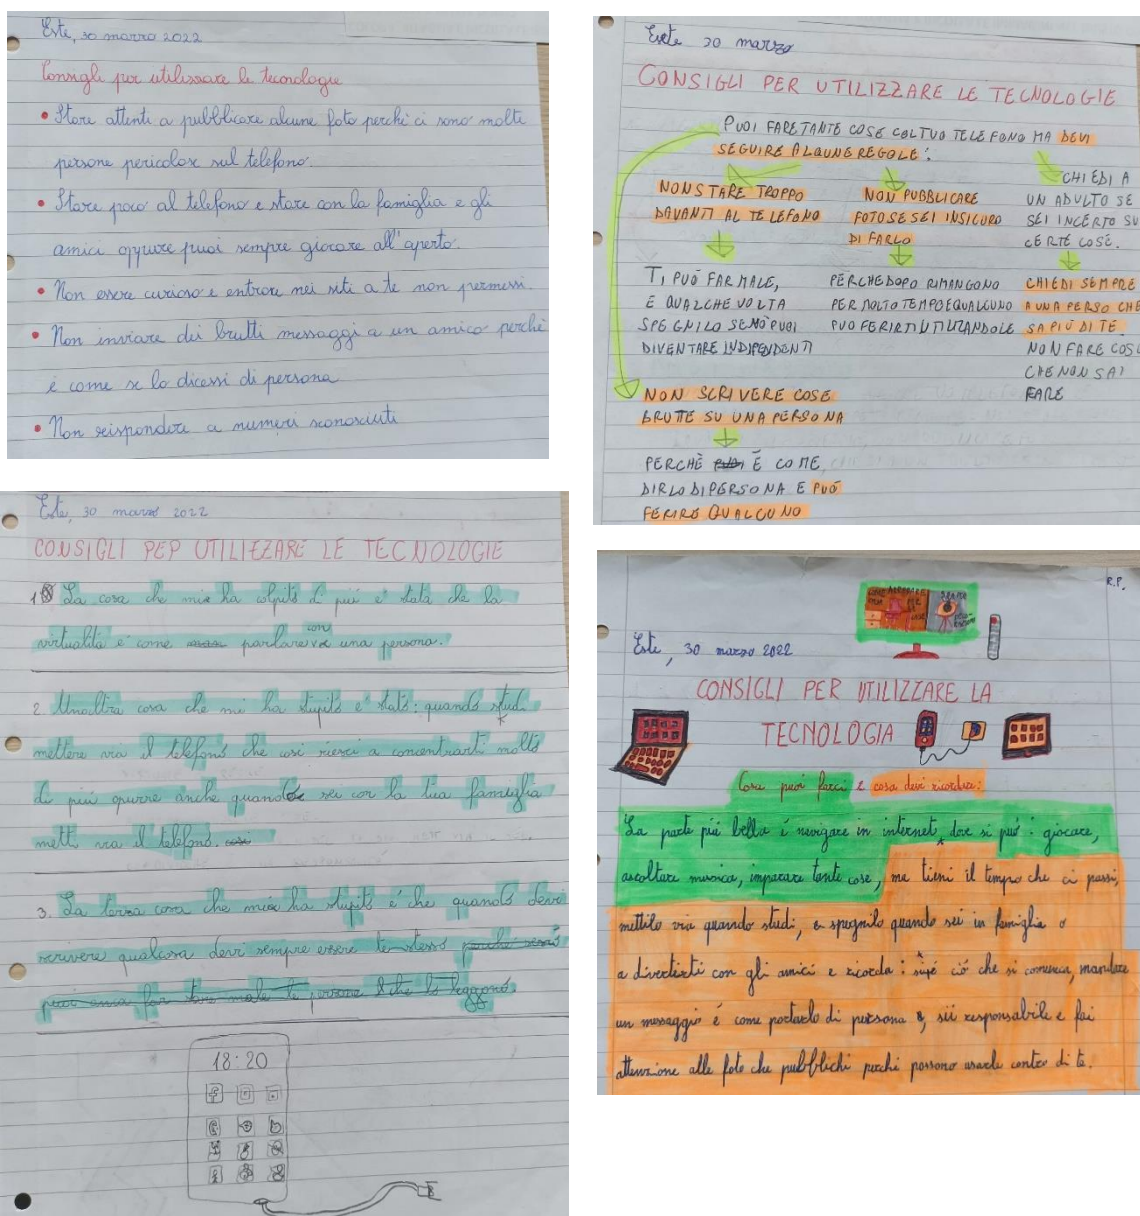 Este, 30 marzo 2022
Consigli per utilizzare le tecnologie
• Stare attenti a pubblicare alcune foto perchè ci sono molte
persone pericolose sul telefono.
• Stare poco al telefono e stare con la famiglia e gli
amici oppure puoi sempre giocare all'aperto.
• Non essere curioso e entrare nei siti a te non permessi.
• Non inviare dei brutti messaggi a un amico perchè
è come se lo dicessi di persona
• Non rispondere a numeri sconosciuti
Este 30 marzo
CONSIGLI PER UTILIZZARE LE TECNOLOGIE
PUOI FARE TANTE COSE COL TUO TELEFONO MA DEVI
SEGUIRE ALCUNE REGOLE:
NON STARE TROPPO
DAVANTI AL TELEFONO
TI PUÓ FAR MALE,
E QUALCHE VOLTA
SPEGNILO SENÓ PUOI
DIVENTARE INDIPENDENTI
NON PUBBLICARE
FOTO SE SEI INSICURO
DI FARLO
PERCHE DOPO RIMANGONO
PER MOLTO TEMPO E QUALCUNO
PUO FERIRTI UTILIZANDOLE
CHIEDI A
UN ADULTO SE
SEI INCERTO SU
CERTE COSE.
CHIEDI SEMPRE
A UNA PERSO CHE
SA PIÚ DI TE.
NON FARE COSE
CHE NON SAI
FARE
NON SCRIVERE COSE
BRUTTE SU UNA PERSONA
PERCHÈ É COME
DIRLO DI PERSONA E PUÓ
FERIRE QUALCUNO
Este, 30 marzo 2022
CONSIGLI PEP UTILIZZARE LE TECNOLOGIE
1 La cosa che mi ha colpito di piú è stata che la
virtualità è come parlare con una persona.
2. Un'altra cosa che mi ha stupito e' stato: quando studi
mettere via il telefono che cosi riesci a concentrarti molto
di piú opurre anche quando sei con la tua famiglia
metti via il telefono.
3. La terza cosa che mi ha stupito é che quando devi
scrivere qualcosa devi sempre essere te stesso
18:20
R.P.
Este, 30 marzo 2022
CONSIGLI PER UTILIZZARE LA
TECNOLOGIA
Cosa puoi farci e cosa devi ricordare:
La parte piú bella é navigare in internet, dove si puó: giocare,
ascoltare musica, imparare tante cose, ma tieni il tempo che ci passi,
mettilo via quando studi, e spegnilo quando sei in famiglia o
a divertirti con gli amici e ricorda: ció che si comunica, mandare
un messaggio é come portarlo di persona, sii responsabile e fai
attenzione alle foto che pubblichi perchi possono usarle contro di te.